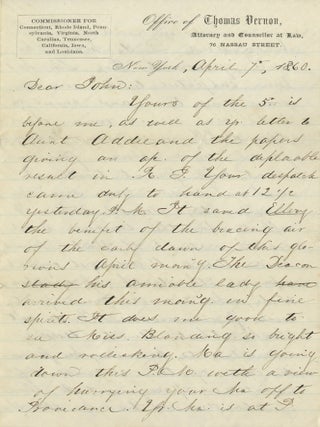 COMMISSIONER FOR
Connecticut, Rhode Island, Penn-
sylvania, Virginia, North
Carolina, Tennessee,
California, Iowa,
and Louisiana.
Office of Thomas Vernon,
Attorney and Counsellor at Law,
76 NASSAU STREET.
New York, April 7th, 1860.
Dear John:
Yours of the 5th is
before me, as well as yr letter to
Aunt Addie and the papers
giving an a/c of the deplorable
result in R I. Your despatch
came duly to hand at 12 1/2
yesterday P.M. It saved Ellery
the benefit of the bracing air
of the early dawn of this glo-
rious April morn'g. The Deacon
his amiable lady have
arrived this morn'g in fine
spirits. It does me good to
see Miss. Blanding so bright
and rollicking. Ma is going
down this P.M. with a view
of hurrying your Ma off to
Providence. Yr Ma is at